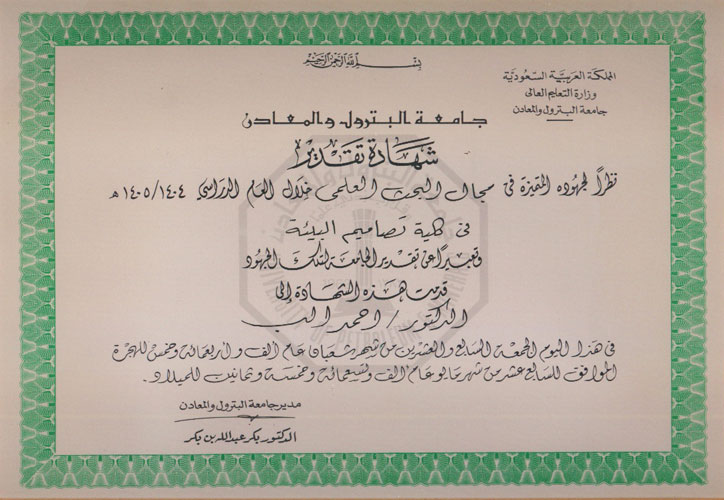 بسم الله الرحمن الرحيم
المملكة العربية السعودية
وزارة التعليم العالى
جامعة البترول والمعادن
جامعة البترول والمعادن
شهادة تقدير
نظراً لجهوده المتميزة في مجال البحث العلمي خلال العام الدراسي ١٤٠٤/١٤٠٥ هـ
في كلية تصاميم البيئة
وتعبيراً عن تقدير الجامعة لتلك الجهود
قدمت هذه الشهادة إلى
الدكتور/ احمد الب
في هذا اليوم الجمعة السابع والعشرين من شهر شعبان عام الف واربعمائة وخمس للهجرة
الموافق للسابع عشر من شهر مايو عام الف وتسعمائة وخمسة وثمانين للميلاد.
مدير جامعة البترول والمعادن
الدكتور بكر عبدالله بن بكر